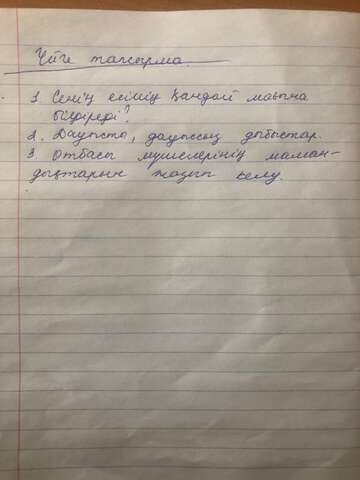 Үйге тапсырма.
1 Сенің есімің қандай мағына
білдіреді?
2. Дауысты, дауыссыз дыбыстар.
3. Отбасы мүшелерінің маман-
дықтарын жазып келу.